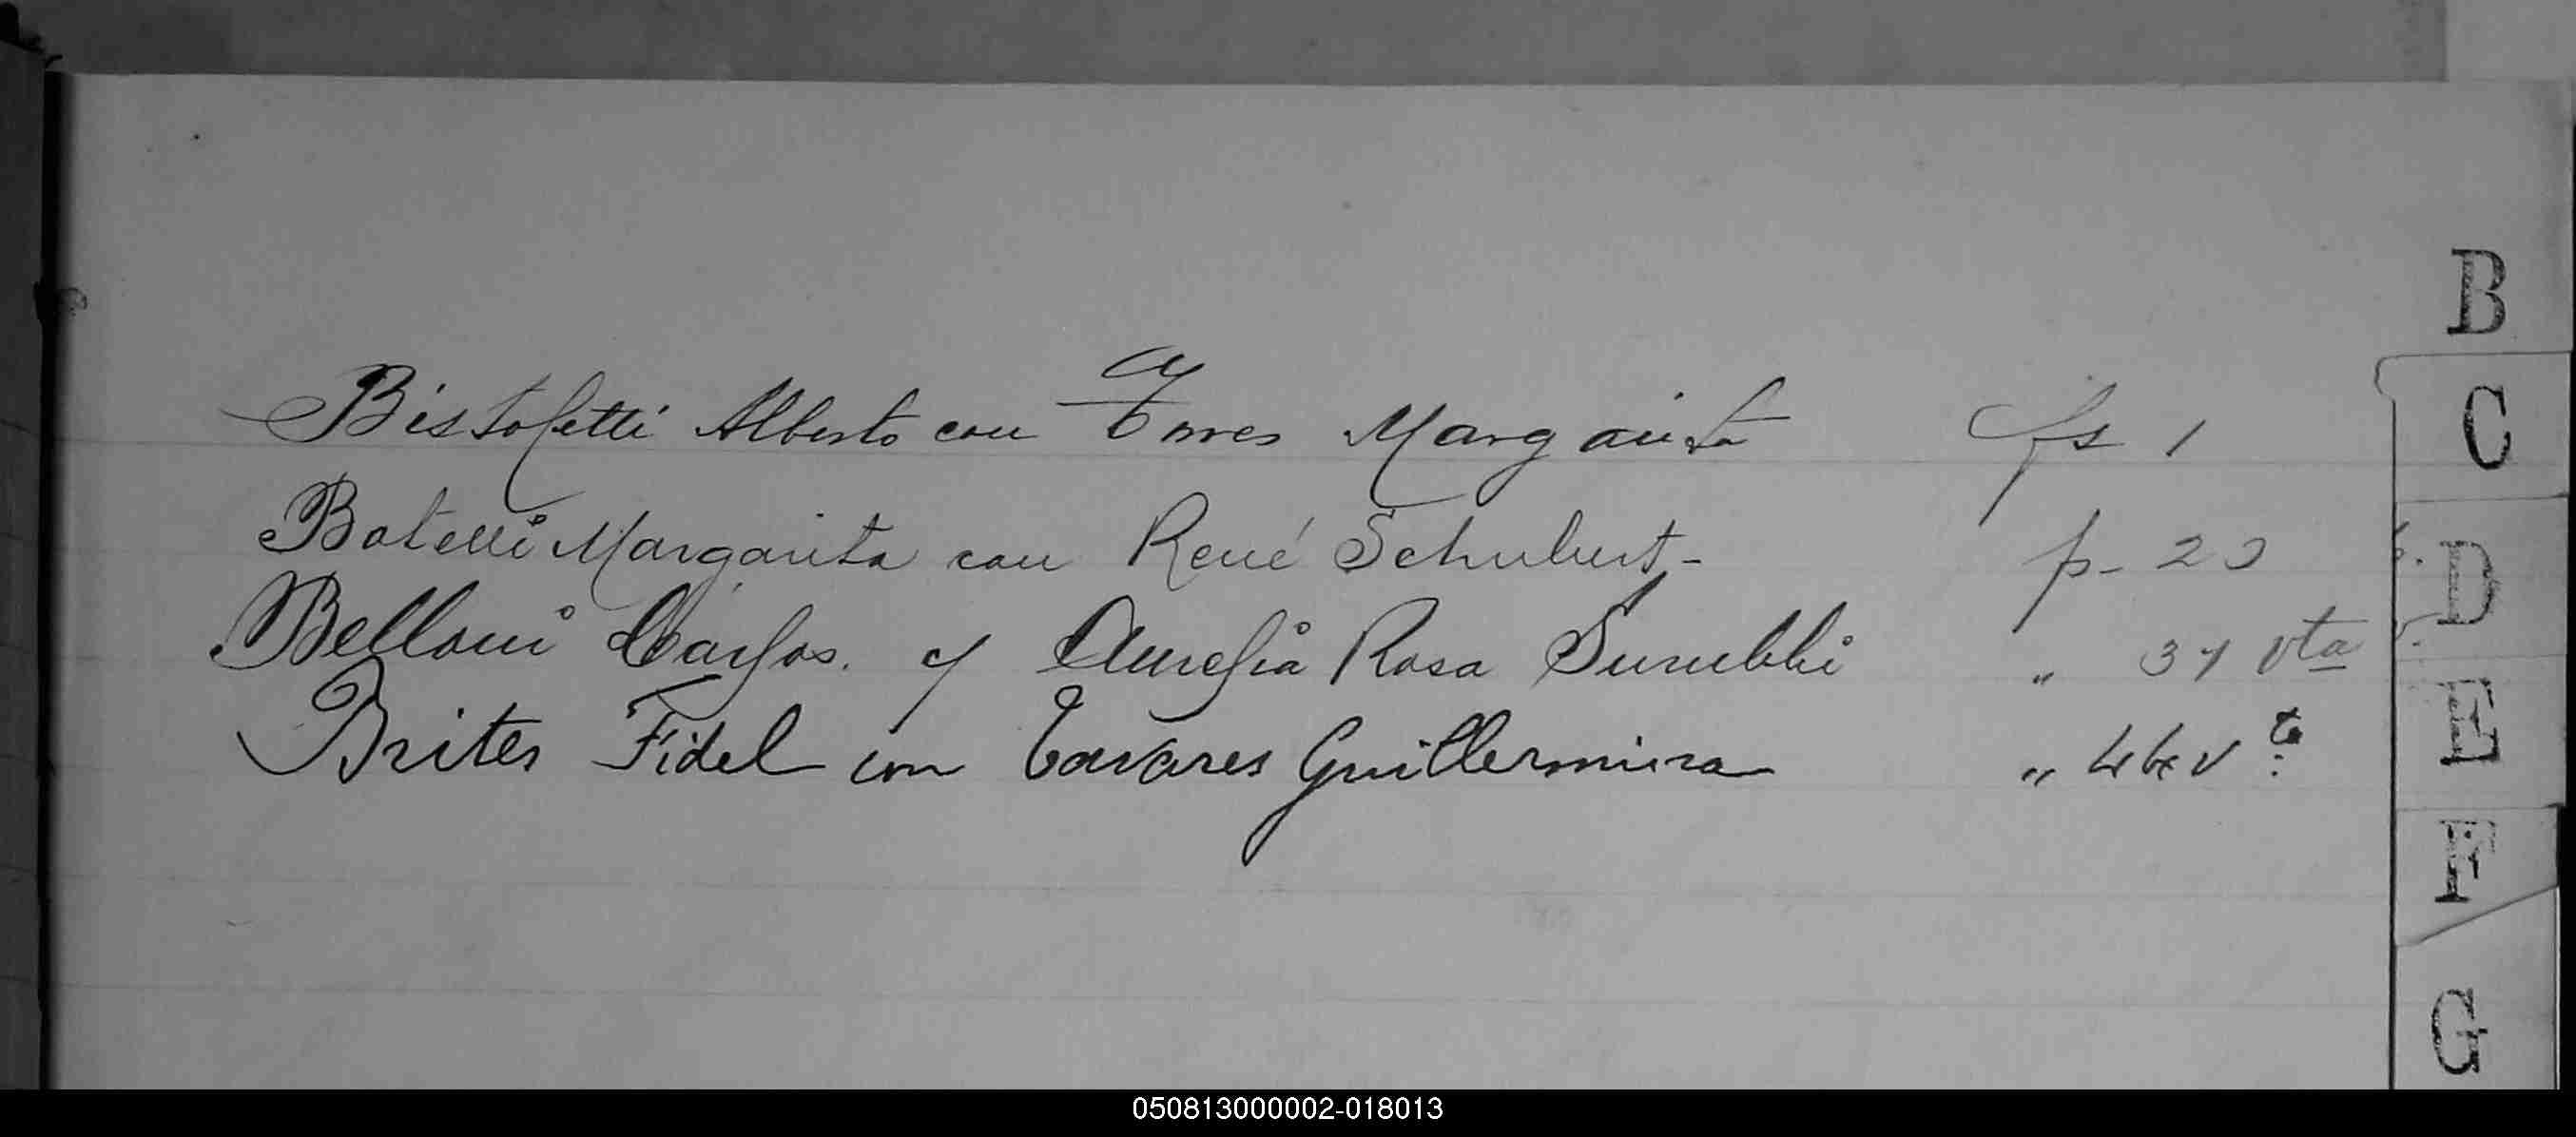 Bistoletti Alberto con Torres Margarita fs 1
Botelli Margarita con René Schubert - p - 23
Belloni Carlos. y Aurelia Rosa Surubbi " 31 vta
Brites Fidel con Tavares Guillermina " 44 vta
B
C
D
E
F
G
050813000002-018013